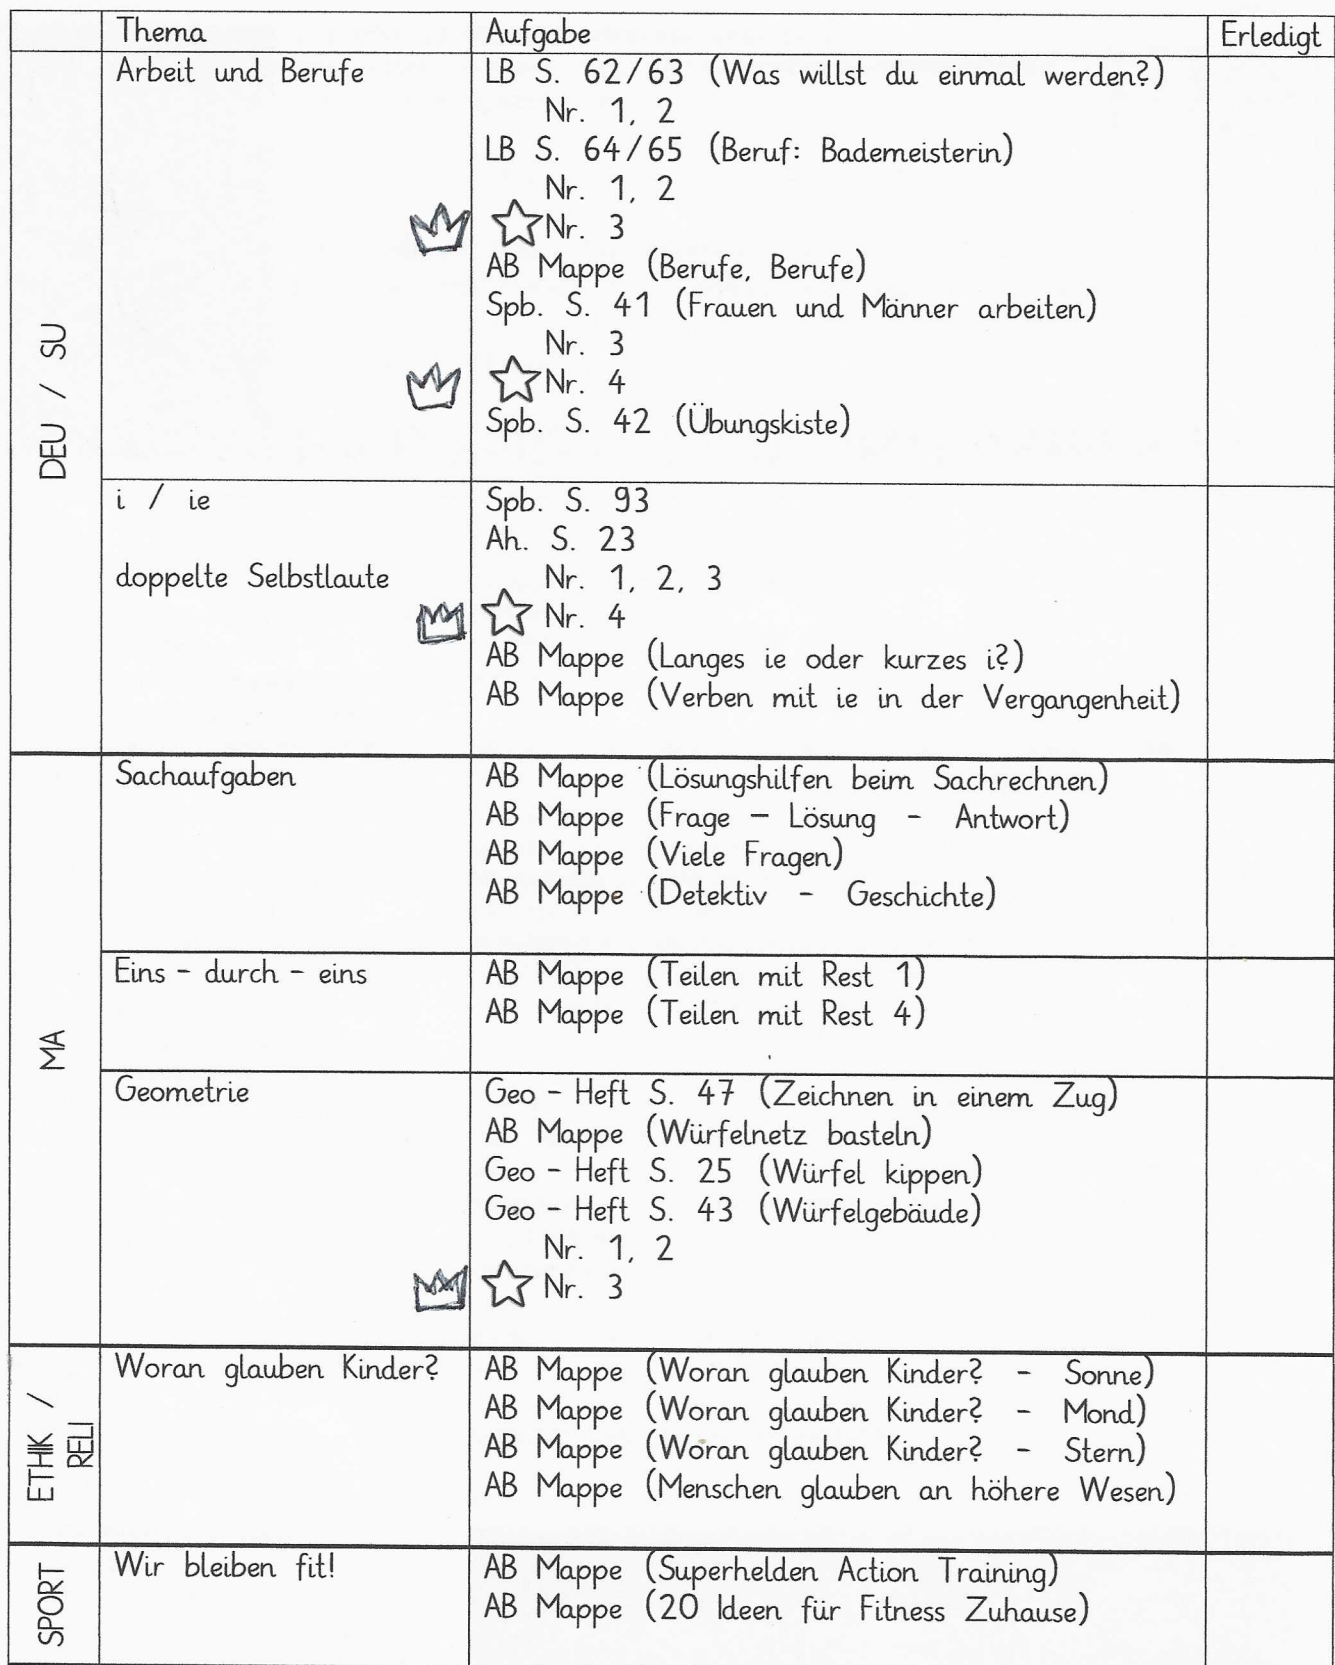 Thema Aufgabe Erledigt
DEU / SU
Arbeit und Berufe
LB S. 62/63 (Was willst du einmal werden?)
Nr. 1, 2
LB S. 64/65 (Beruf: Bademeisterin)
Nr. 1, 2
Nr. 3
AB Mappe (Berufe, Berufe)
Spb. S. 41 (Frauen und Männer arbeiten)
Nr. 3
Nr. 4
Spb. S. 42 (Übungskiste)
i / ie
doppelte Selbstlaute
Spb. S. 93
Ah. S. 23
Nr. 1, 2, 3
Nr. 4
AB Mappe (Langes ie oder kurzes i?)
AB Mappe (Verben mit ie in der Vergangenheit)
MA
Sachaufgaben
AB Mappe (Lösungshilfen beim Sachrechnen)
AB Mappe (Frage – Lösung - Antwort)
AB Mappe (Viele Fragen)
AB Mappe (Detektiv - Geschichte)
Eins - durch - eins
AB Mappe (Teilen mit Rest 1)
AB Mappe (Teilen mit Rest 4)
Geometrie
Geo - Heft S. 47 (Zeichnen in einem Zug)
AB Mappe (Würfelnetz basteln)
Geo - Heft S. 25 (Würfel kippen)
Geo - Heft S. 43 (Würfelgebäude)
Nr. 1, 2
Nr. 3
ETHIK /
RELI
Woran glauben Kinder?
AB Mappe (Woran glauben Kinder? - Sonne)
AB Mappe (Woran glauben Kinder? - Mond)
AB Mappe (Woran glauben Kinder? - Stern)
AB Mappe (Menschen glauben an höhere Wesen)
SPORT
Wir bleiben fit!
AB Mappe (Superhelden Action Training)
AB Mappe (20 Ideen für Fitness Zuhause)